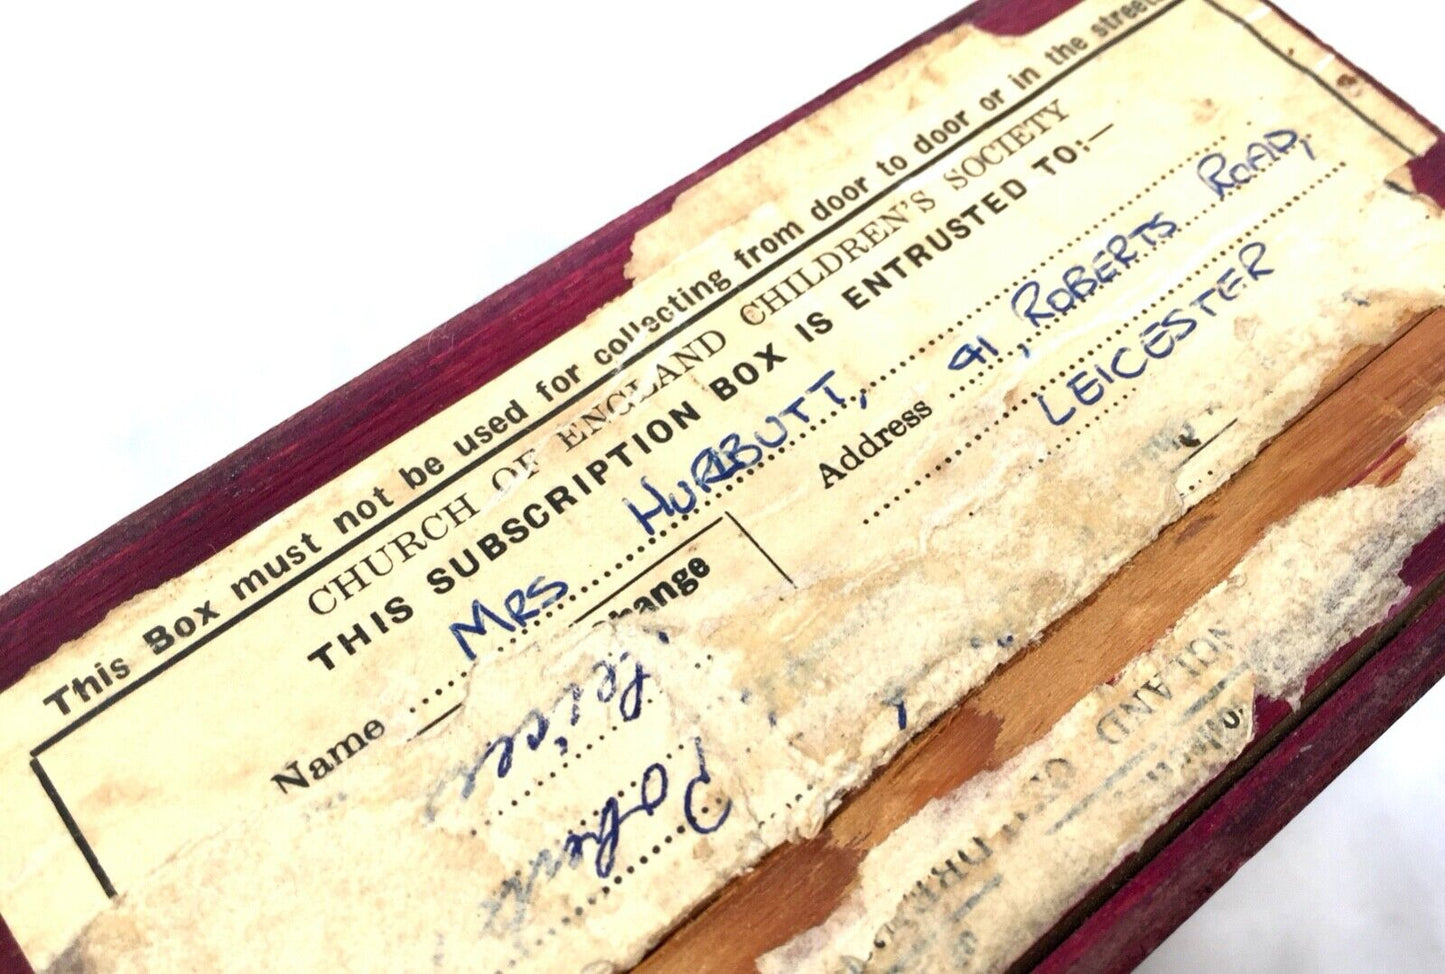 This Box must not be used for collecting from door to door or in the street
CHURCH OF ENGLAND CHILDREN'S SOCIETY
THIS SUBSCRIPTION BOX IS ENTRUSTED TO:—
Name MRS HURBUTT,
Address 41, ROBERTS ROAD,
LEICESTER
hange
Robert
Leices
GLAND CHILDREN